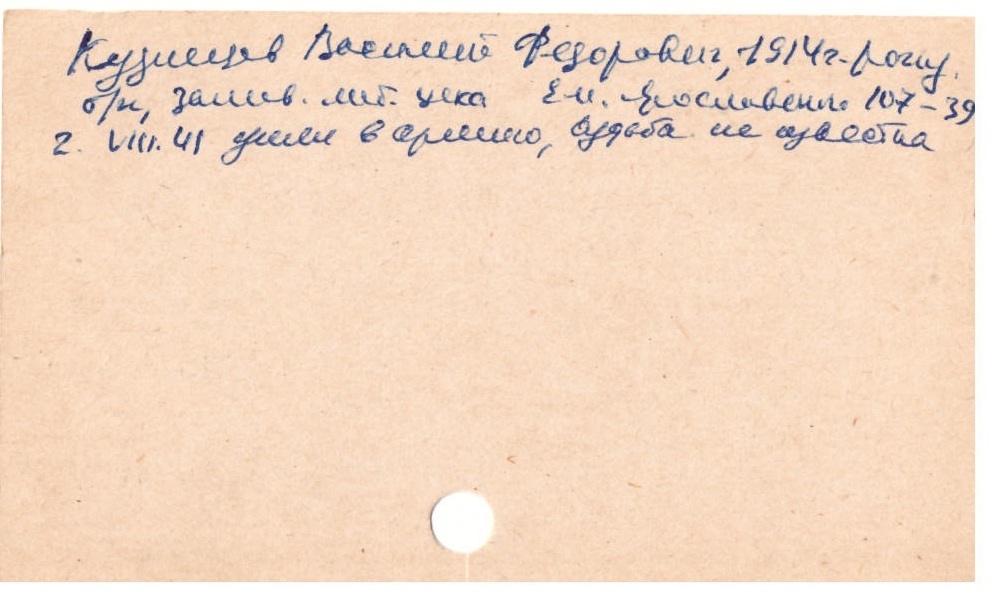 Кузнецов Василий Федорович, 1914 г. рожд.
б/п, залив. лит. цеха Ем. Ярославского 107-39
2. VIII. 41 ушел в армию, судьба не известна